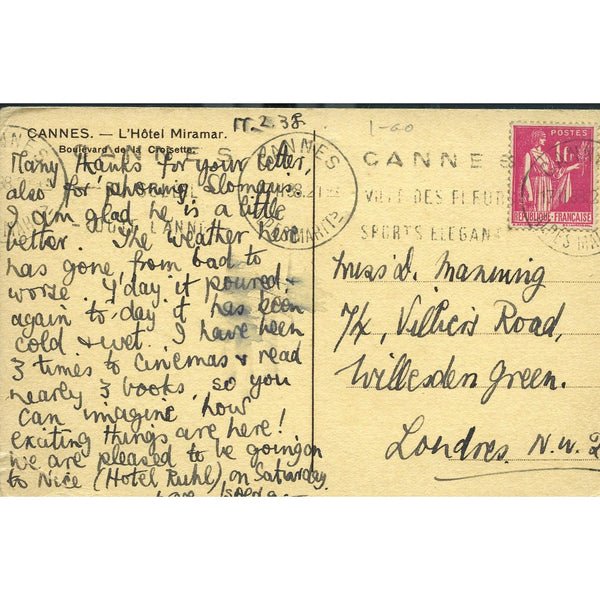 CANNES. — L'Hôtel Miramar.
Boulevard de la Croisette.
17.2.38
1-60
Many thanks for your letter,
also for phoning Slomans.
I am glad he is a little
better. The weather here
has gone, from bad to
worse. Y'day it poured &
again to-day it has been
cold & wet. I have been
3 times to cinemas & read
nearly 3 books, so you
can imagine how
exciting things are here!
We are pleased to be going on
to Nice (Hotel Ruhl) on Saturday.
CANNES
CANNES
VILLE DES FLEURS
SPORTS ELEGAN
POSTES
1F
REPUBLIQUE FRANÇAISE
Miss D. Manning
7/4, Villiers Road,
Willesden Green.
Londres. N.W.2